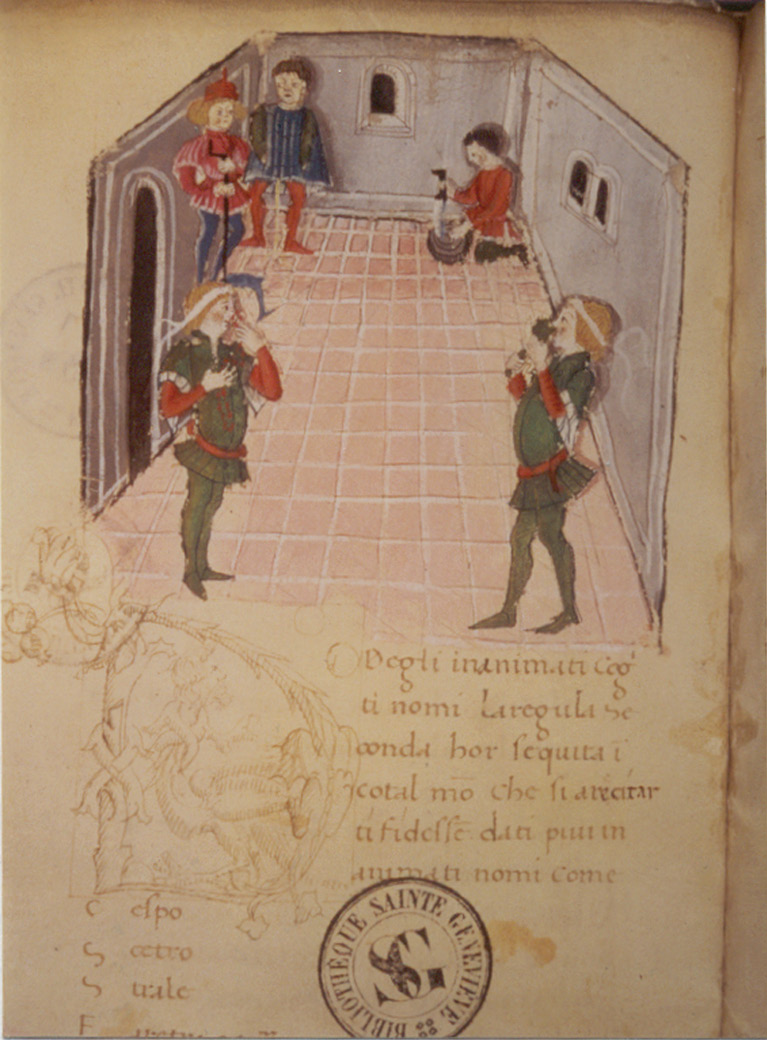 Degli inanimati cog
ti nomi La regula Se
conda hor sequita i
cotal mo che si a recitar
ti fidesse dati piu in
animati nomi come
C espo
S cetro
S trale
F
BIBLIOTHEQUE SAINTE GENEVIEVE
SG